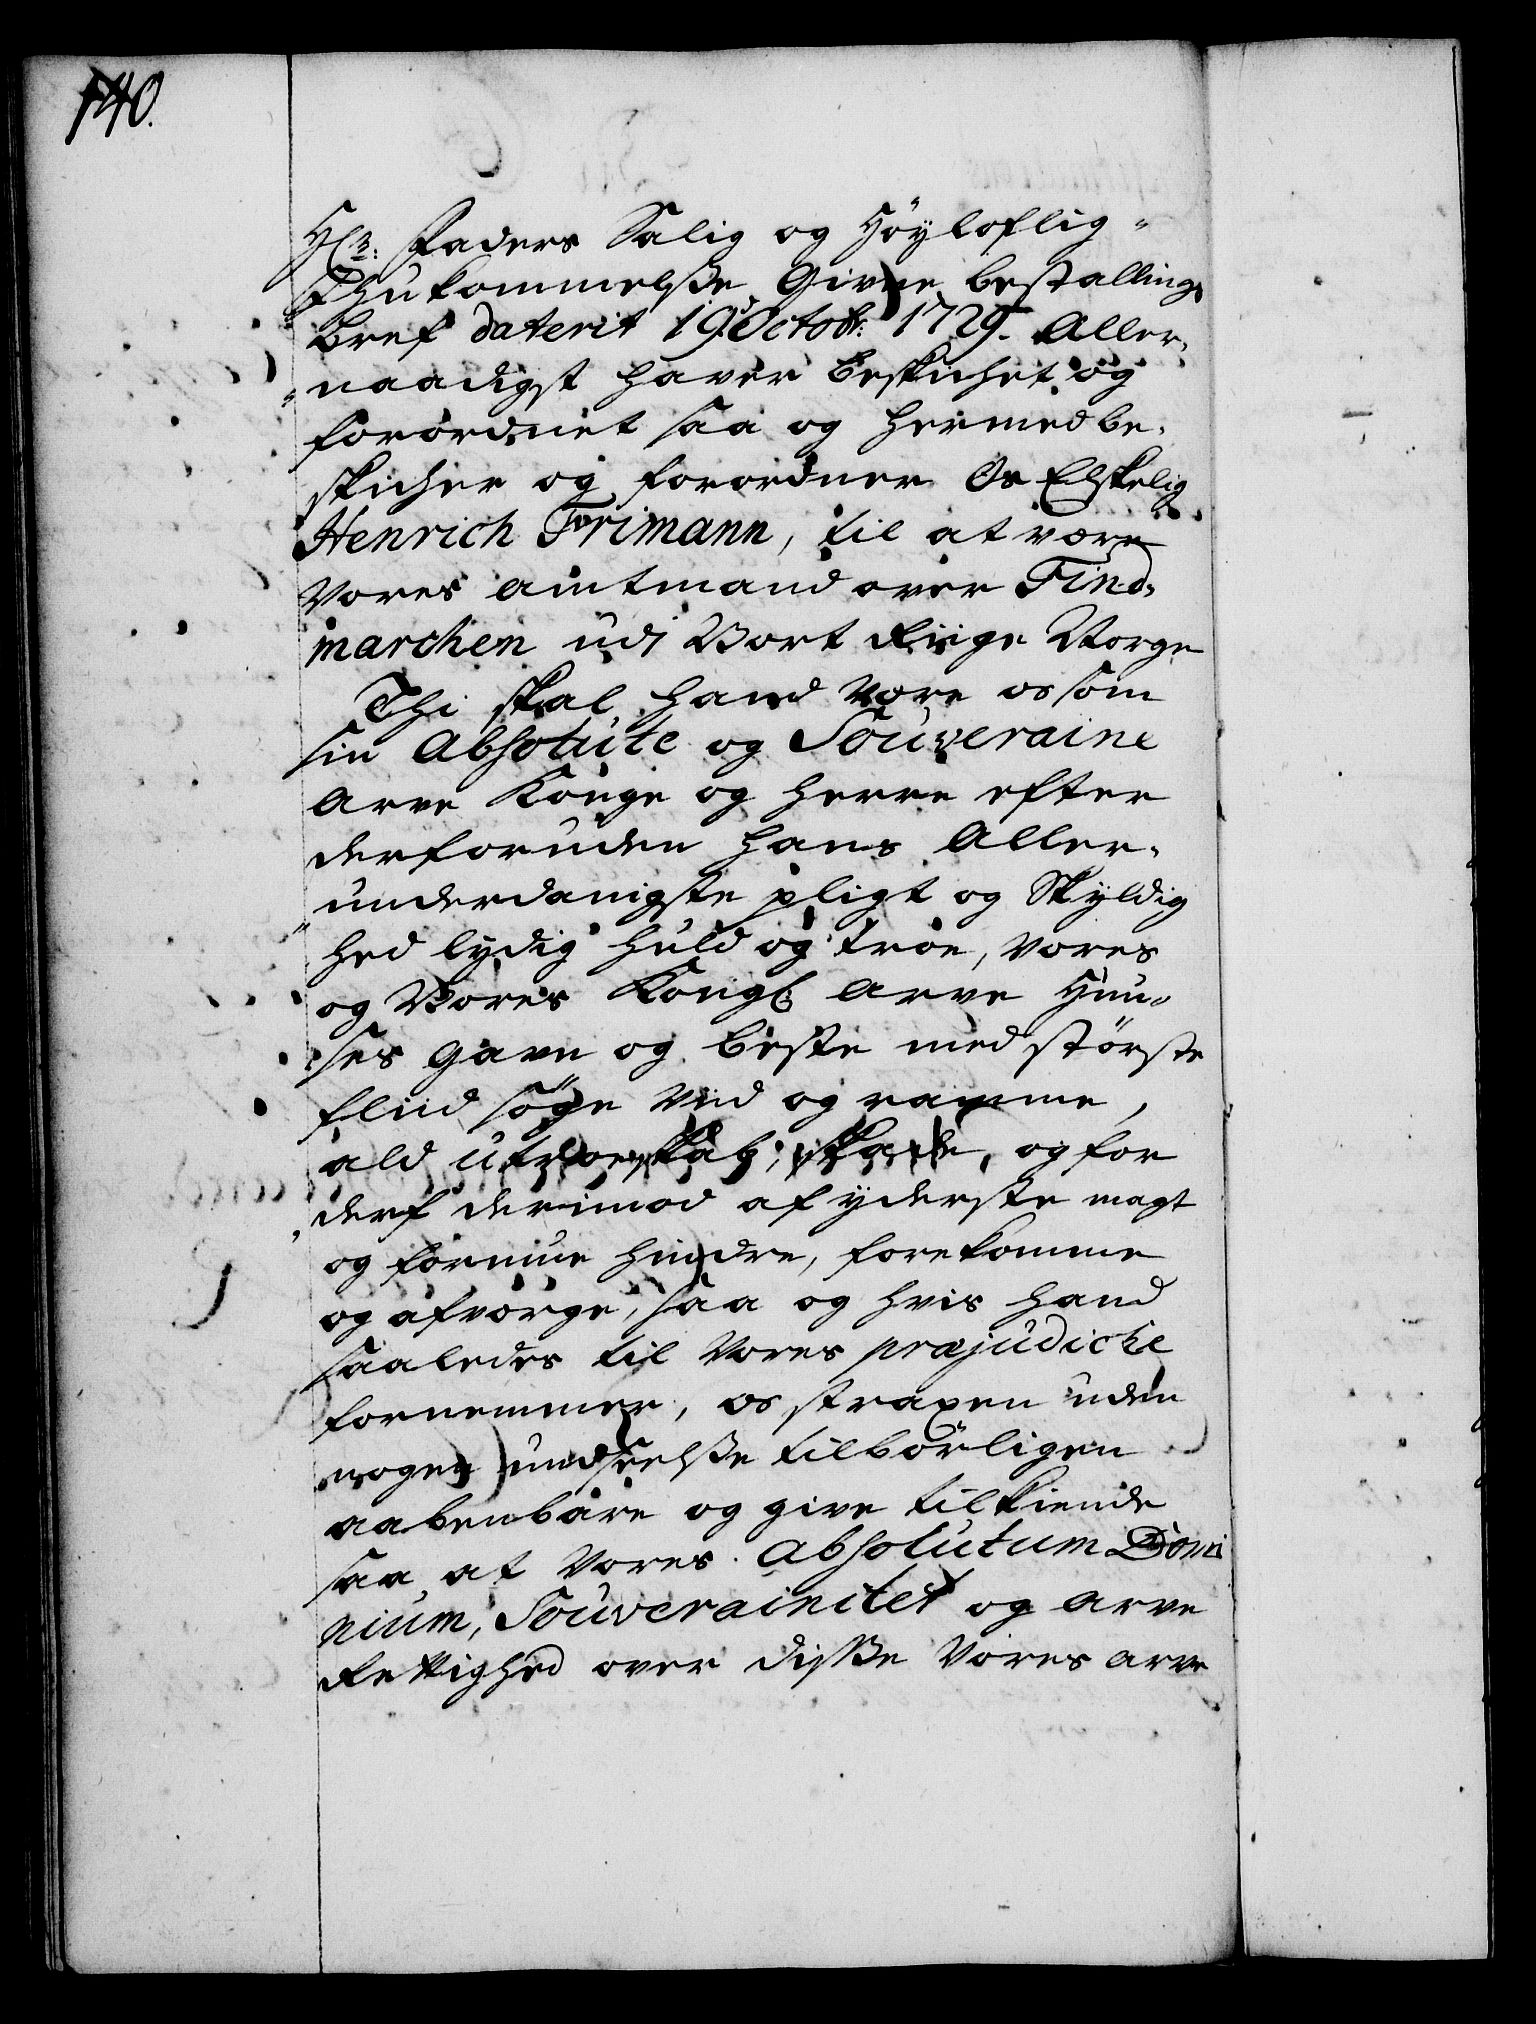 140.
Hr: Faders Salig og Høyloflig-
Ihukommelße Givne bestallings
Bref daterit 19 Octobr: 1729. Aller-
naadigst haver beskichet og
forordnet saa og hermed be-
skicher og forordner Os Elskelig
Henrich Frimann, til at være
Vores amtmand over Find-
marchen udi Vort Riige Norge
Thi skal hand være os som
sin absolute og Souveraine
Arve Konge og Herre efter
derforuden hans Aller-
underdanigste pligt og Skyldig
hed lydig huld og troe, Vores
og Vores Kongl: Arve Huu-
ses gavn og beste med største
fliid søge Viid og ramme,
ald utroeskab, skade, og for
derf derimod af yderste magt
og formue hindre, forekomme
og afverge, saa og hvis hand
saaledes til Vores præjudicie
fornemmer, os straxen uden
nogen undseelße tilbørligen
aabenbare og give tilkiende
saa at Vores absolutum Domi
nium, Souverainitet og arve
Rettighed over diße Vores arve